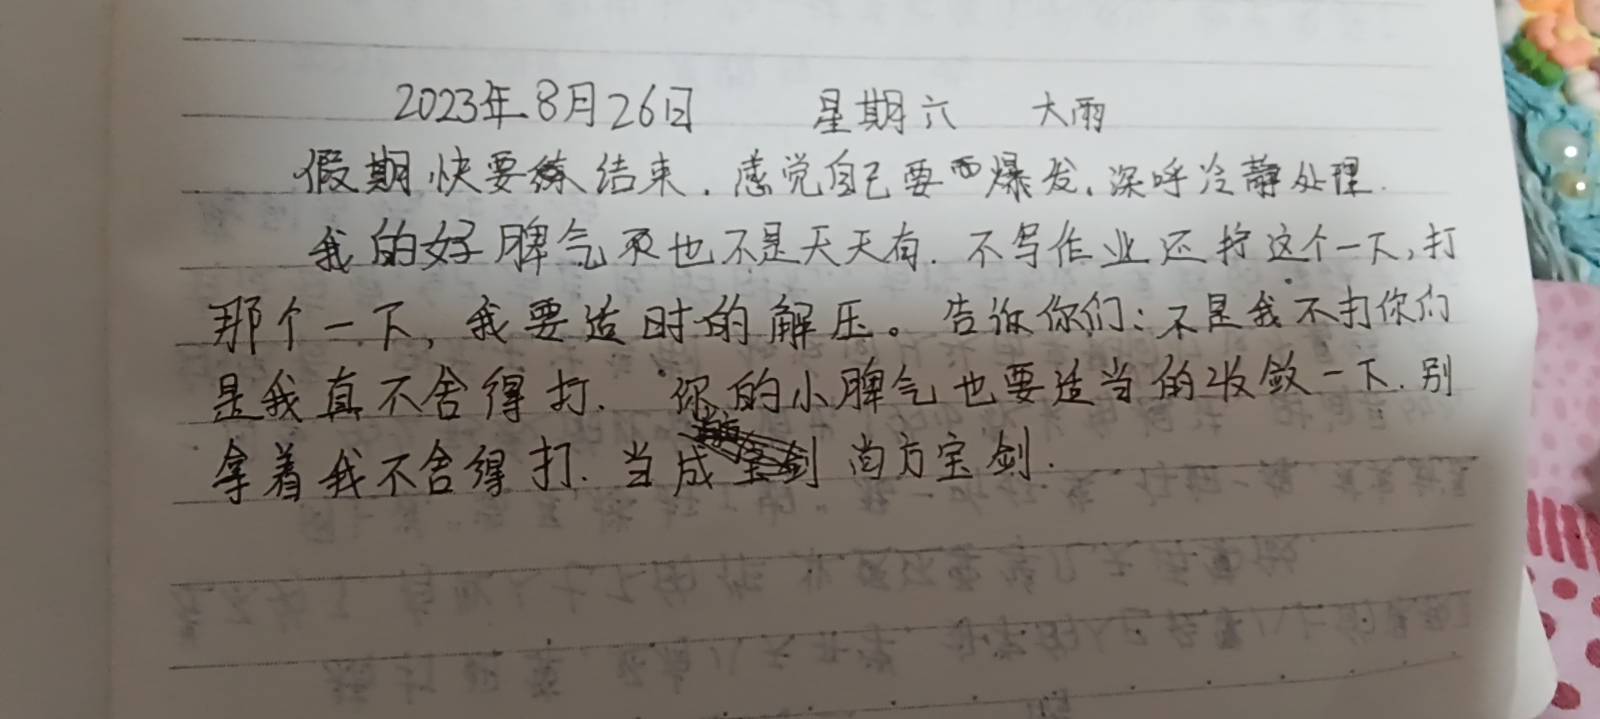 2023年8月26日 星期六 大雨
假期快要结束.感觉自己要爆发.深呼冷静处理.
我的好脾气也不是天天有.不写作业还打这个一下,打
那个一下,我要适时的解压。告诉你们:不是我不打你们
是我真不舍得打.你的小脾气也要适当的收敛一下.别
拿着我不舍得打.当成尚方宝剑.